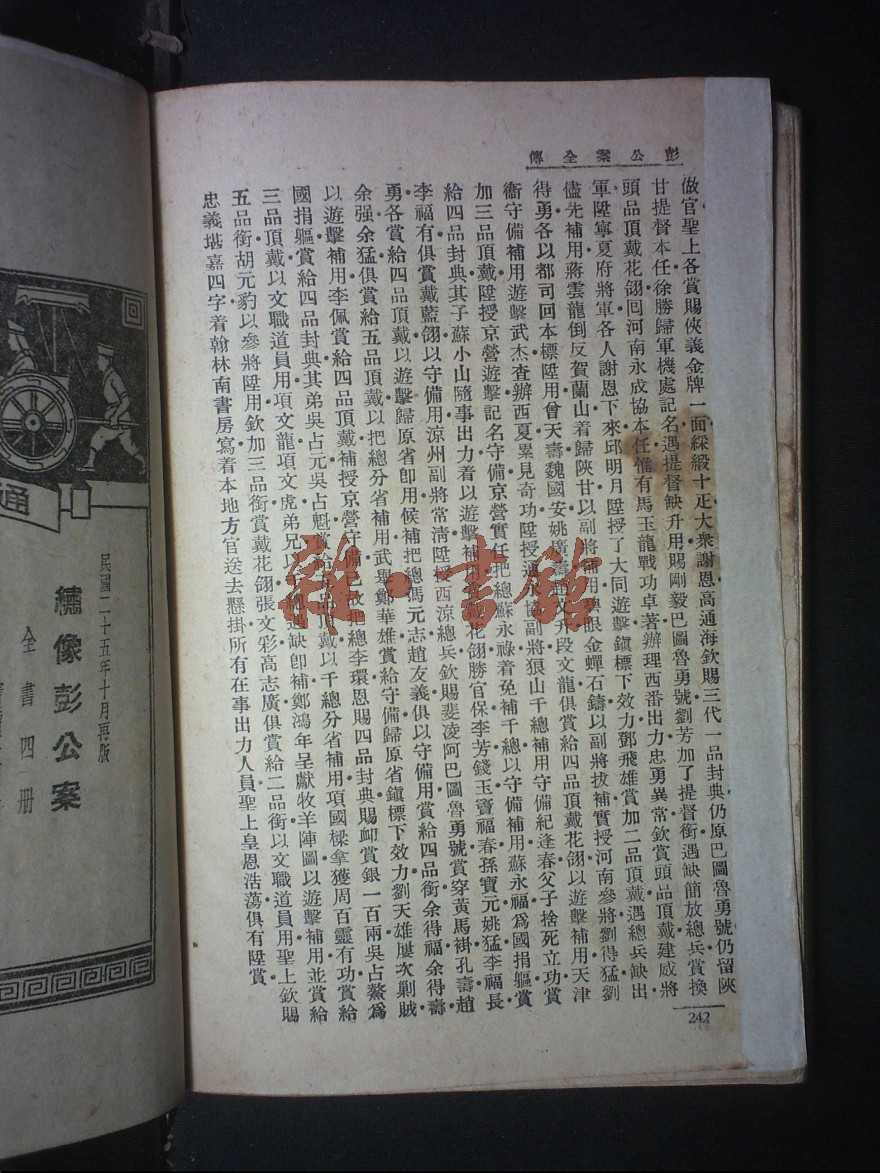 彭公案全傳
做官聖上各賞賜俠義金牌一面綵緞十疋大衆謝恩高通海欽賜三代一品封典仍原巴圖魯勇號仍留陝
甘提督本任徐勝歸軍機處記名遇提督缺升用賜剛毅巴圖魯勇號劉芳加了提督銜遇缺簡放總兵賞換
頭品頂戴花翎囘河南永成協本任惟有馬玉龍戰功卓著辦理西番出力忠勇異常欽賞頭品頂戴建威將
軍陞寧夏府將軍各人謝恩下來邱明月陞授了大同遊擊鎭標下效力鄧飛雄賞加二品頂戴遇總兵缺出
儘先補用蔣雲龍倒反賀蘭山着歸陝甘以副將補用 眼金蟬石鑄以副將拔補實授河南參將劉得猛劉
得勇各以都司回本標陞用曾天壽魏國安姚廣壽 文升段文龍俱賞給四品頂戴花翎以遊擊補用天津
衞守備補用遊擊武杰査辦西夏累見奇功陞授通 協副將狼山千總補用守備紀逢春父子捨死立功賞
加三品頂戴陞授京營遊擊記名守備京營實任把總蘇永祿着免補千總以守備補用蘇永福爲國捐軀賞
給四品封典其子蘇小山隨事出力者以遊擊補用 花翎勝官保李芳錢玉寶福春孫寶元姚猛李福長
李福有俱賞戴藍翎以守備用涼州副將常清陞授西涼總兵欽賜斐凌阿巴圖魯勇號賞穿黃馬褂孔壽趙
勇各賞給四品頂戴以遊擊歸原省卽用候補把總馮元志趙友義俱以守備用賞給四品銜余得福余得壽
余强余猛俱賞給五品頂戴以把總分省補用武舉鄭華雄賞給守備歸原省鎭標下效力劉天雄屢次剿賊
以遊擊補用李佩賞給四品頂戴補授京營守備 故把總李環恩賜四品封典賜卹賞銀一百兩吳占鰲爲
國捐軀賞給四品封典其弟吳占元吳占魁賞給 品頂戴以千總分省補用項國樑拿獲周百靈有功賞給
三品頂戴以文職道員用項文龍項文虎弟兄以 總遇缺卽補鄭鴻年呈獻牧羊陣圖以遊擊補用並賞給
五品銜胡元豹以參將陞用欽加三品銜賞戴花翎張文彩高志廣俱賞給二品銜以文職道員用聖上欽賜
忠義堪嘉四字着翰林南書房寫着本地方官送去懸掛所有在事出力人員聖上皇恩浩蕩俱有陞賞
242
雅·書館
民國二十五年十月再版
繡像彭公案
全書四册
通